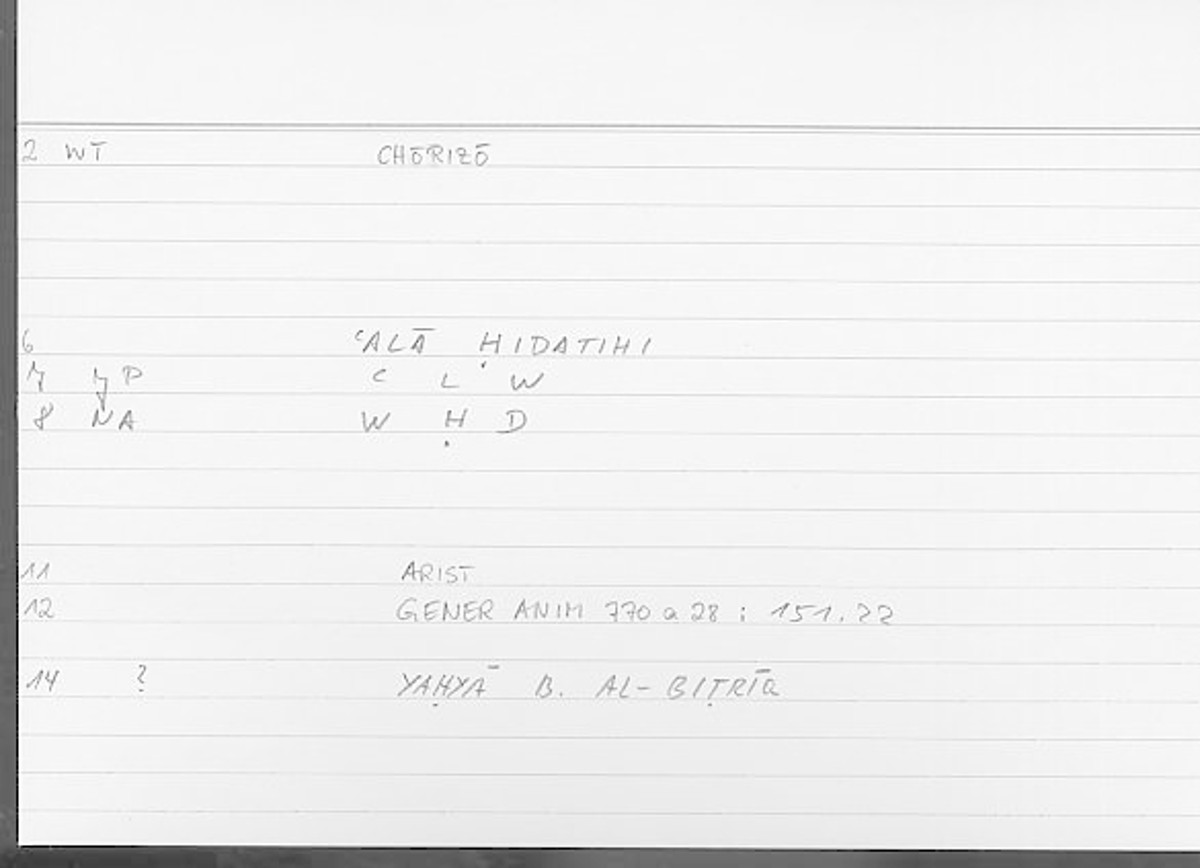 2 WT CHŌRIZŌ
6 ʿALĀ ḤIDATIHI
7 YP ʿ L W
8 NA W Ḥ D
11 ARIST
12 GENER ANIM 770 a 28 : 151.22
14 ? YAḤYĀ B. AL-BIṬRĪQ